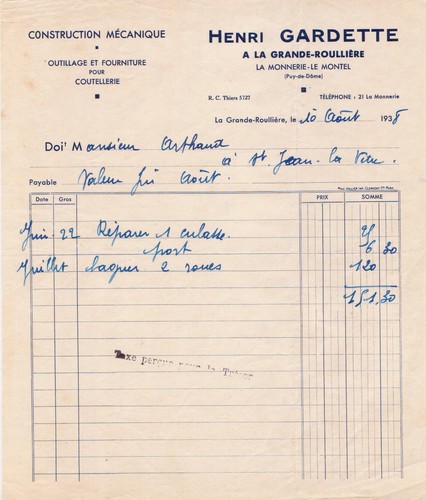 CONSTRUCTION MÉCANIQUE
OUTILLAGE ET FOURNITURE
POUR
COUTELLERIE
HENRI GARDETTE
A LA GRANDE-ROULLIÈRE
LA MONNERIE-LE MONTEL
(Puy-de-Dôme)
R. C. Thiers 5727
TÉLÉPHONE : 21 La Monnerie
La Grande-Roullière, le 10 Août 1938
Doit Monsieur Arthaud
à St Jean-la Vêtre.
Payable Valeur fin Août.
Date Gros PRIX SOMME
Juin. 22 Réparer 1 culasse. 25
port 6 30
Juillet baguer 2 roues 120
151,30
Taxe perçue pour le Trésor